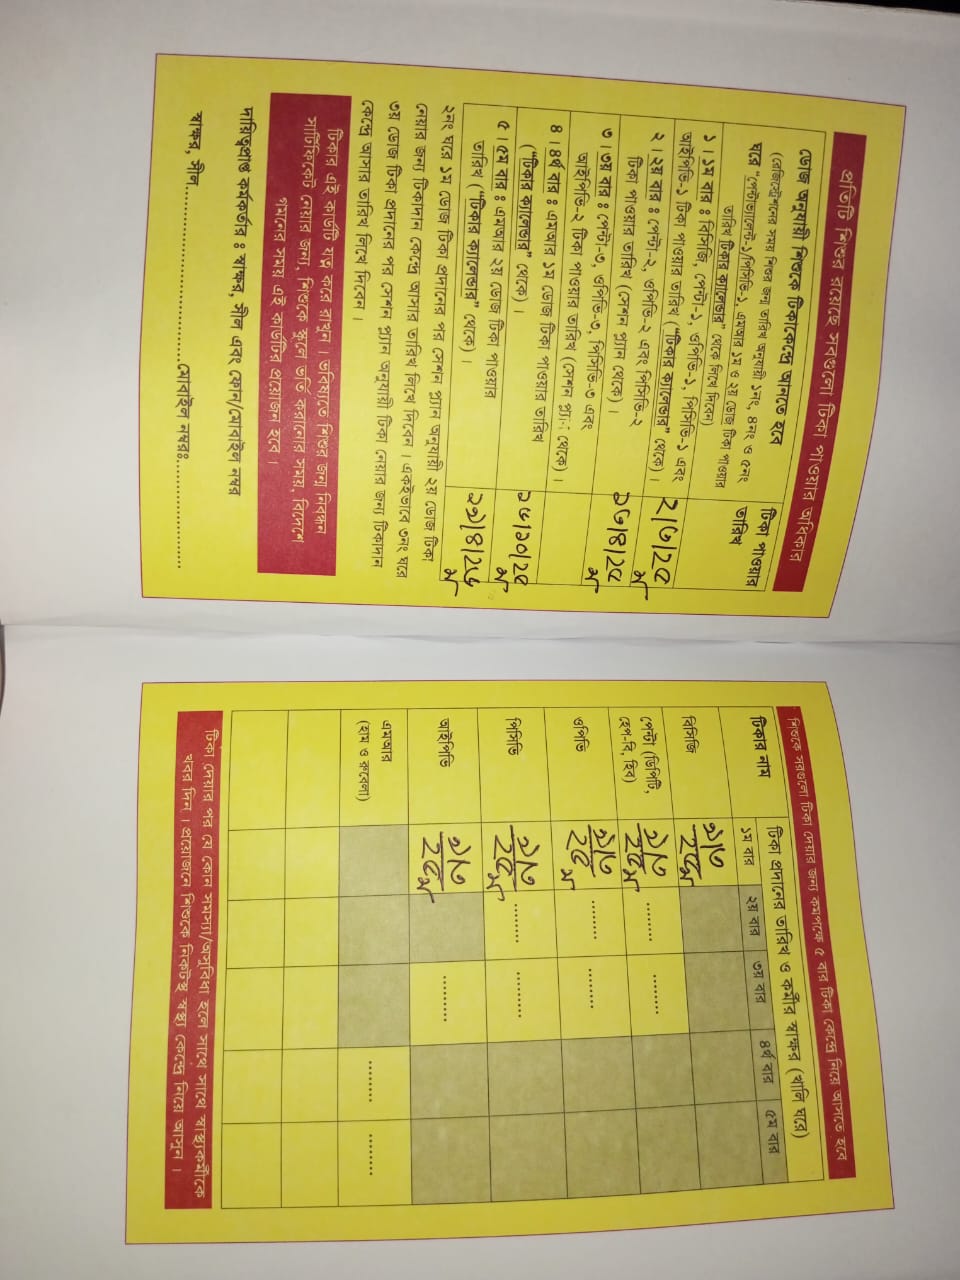 প্রতিটি শিশুর রয়েছে সবগুলো টিকা পাওয়ার অধিকার
ডোজ অনুযায়ী শিশুকে টিকাকেন্দ্রে আনতে হবে
(রেজিস্ট্রেশনের সময় শিশুর জন্য তারিখ অনুযায়ী ১নং, ৪নং ও ৫নং
ঘরে "পেন্টাভ্যালেন্ট-১/পিসিভি-১, এমআর ১ম ও ২য় ডোজ টিকা পাওয়ার
তারিখ টিকার ক্যালেন্ডার" থেকে লিখে দিবেন)
টিকা পাওয়ার
তারিখ
১। ১ম বার : বিসিজি, পেন্টা-১, ওপিভি-১, পিসিভি-১ এবং
আইপিভি-১ টিকা পাওয়ার তারিখ ("টিকার ক্যালেন্ডার" থেকে।
২। ২য় বার : পেন্টা-২, ওপিভি-২ এবং পিসিভি-২
টিকা পাওয়ার তারিখ (সেশন প্ল্যান থেকে)।
২/৩/২৫
৩। ৩য় বার : পেন্টা-৩, ওপিভি-৩, পিসিভি-৩ এবং
আইপিভি-২ টিকা পাওয়ার তারিখ (সেশন প্ল্যা থেকে)।
৪/২৫
৪। ৪র্থ বার : এমআর ১ম ডোজ টিকা পাওয়ার তারিখ
("টিকার ক্যালেন্ডার" থেকে)।
৫। ৫ম বার : এমআর ২য় ডোজ টিকা পাওয়ার
তারিখ ("টিকার ক্যালেন্ডার" থেকে)।
১০/২৫
৪/২৬
২নং ঘরে ১ম ডোজ টিকা প্রদানের পর সেশন প্ল্যান অনুযায়ী ২য় ডোজ টিকা
নেয়ার জন্য টিকাদান কেন্দ্রে আসার তারিখ লিখে দিবেন। একইভাবে ৩নং ঘরে
৩য় ডোজ টিকা প্রদানের পর সেশন প্ল্যান অনুযায়ী টিকা নেয়ার জন্য টিকাদান
কেন্দ্রে আসার তারিখ লিখে দিবেন।
টিকার এই কার্ডটি যত্ন করে রাখুন। ভবিষ্যতে শিশুর জন্ম নিবন্ধন
সার্টিফিকেট নেয়ার জন্য, শিশুকে স্কুলে ভর্তি করানোর সময়, বিদেশে
গমনের সময় এই কার্ডটির প্রয়োজন হবে।
দায়িত্বপ্রাপ্ত কর্মকর্তার : স্বাক্ষর, সীল এবং ফোন/মোবাইল নম্বর
স্বাক্ষর, সীল..............................মোবাইল নম্বরঃ....................
শিশুকে সবগুলো টিকা দেয়ার জন্য কমপক্ষে ৫ বার টিকা কেন্দ্রে নিয়ে আসতে হবে
টিকার নাম
টিকা প্রদানের তারিখ ও কর্মীর স্বাক্ষর (খালি ঘরে)
১ম বার ২য় বার ৩য় বার ৪র্থ বার ৫ম বার
বিসিজি ২/৩ ২৫
পেন্টা (ডিপিটি, হেপ-বি, হিব) ২/৩ ২৫ ........ ........
ওপিভি ২/৩ ২৫ ........ ........
পিসিভি ২/৩ ২৫ ........ ........
আইপিভি ২/৩ ২৫ ........
এমআর
(হাম ও রুবেলা) ........ ........
টিকা দেয়ার পর যে কোন সমস্যা/অসুবিধা হলে সাথে সাথে স্বাস্থ্যকর্মীকে
খবর দিন। প্রয়োজনে শিশুকে নিকটস্থ স্বাস্থ্য কেন্দ্রে নিয়ে আসুন।